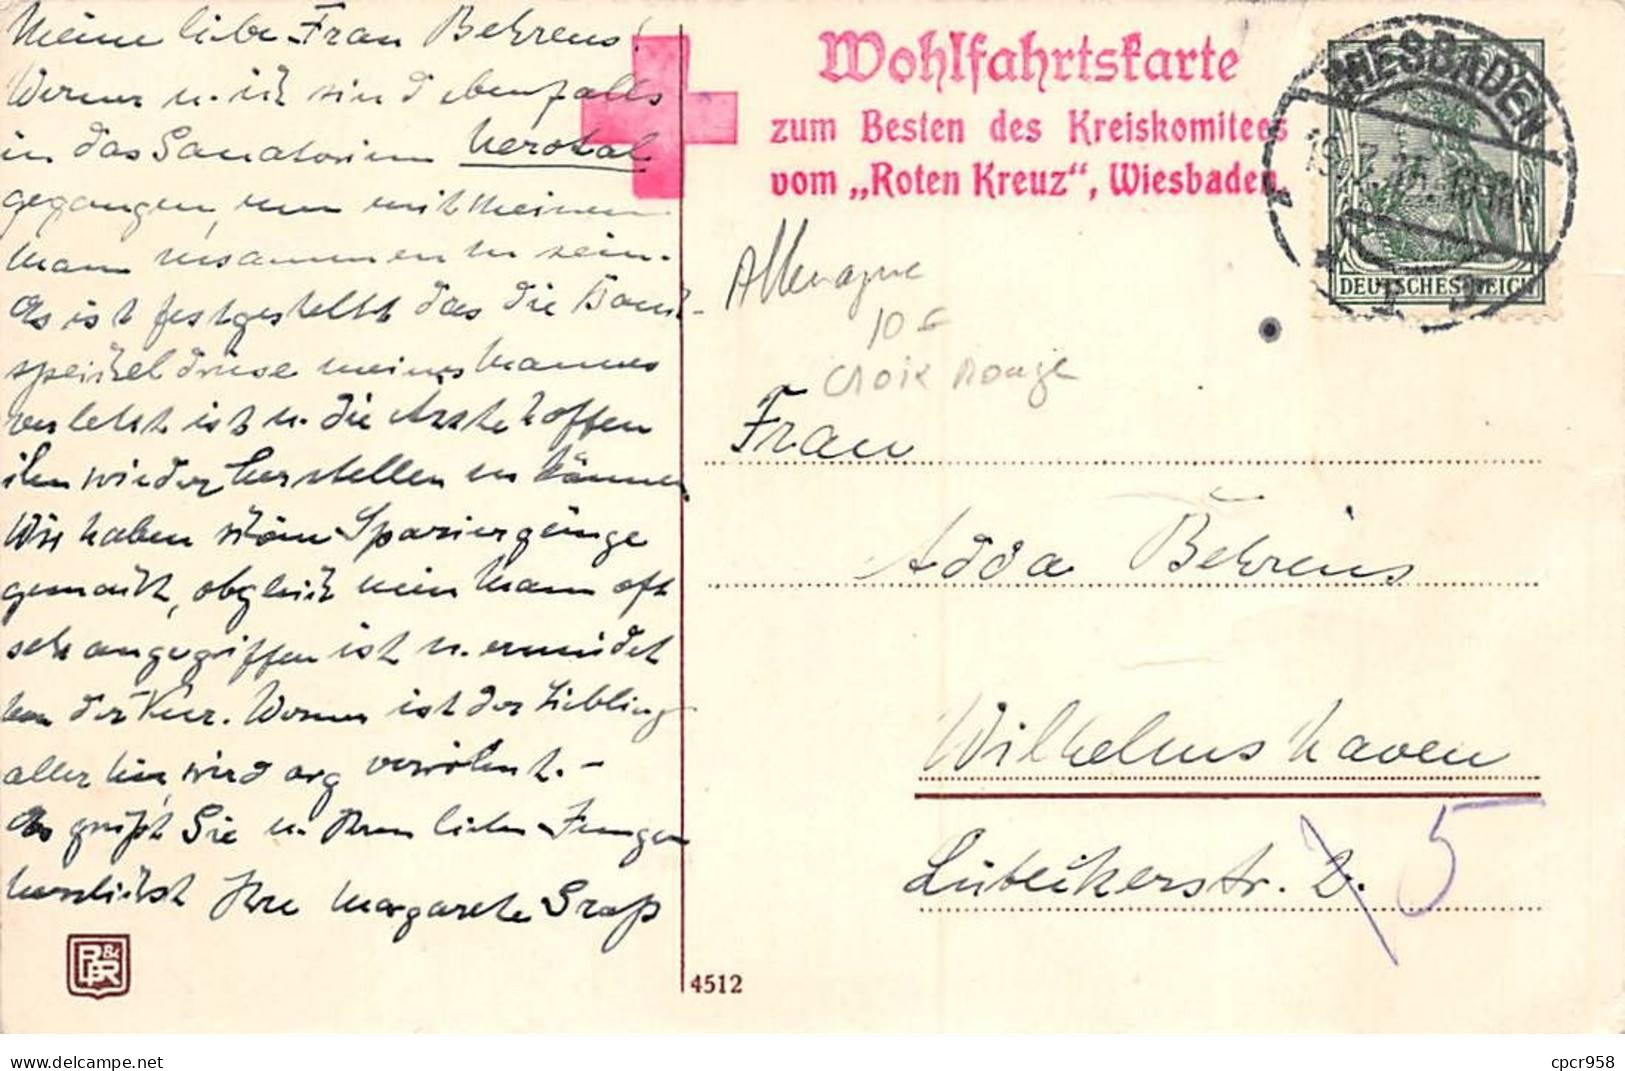 Meine liebe Frau Behrens!
Werner u. ich sind ebenfalls
in das Sanatorium Nerotal
gegangen, um mit meinem
Mann zusammen zu sein.
Es ist festgestellt das die Bauch-
speicheldrüse meines Mannes
verletzt ist u. die Ärzte hoffen
ihn wieder herstellen zu können
Wir haben schöne Spaziergänge
gemacht, obgleich mein Mann oft
sehr angegriffen ist u. ermüdet
von der Kur. Werner ist der Liebling
aller hier, wird arg verwöhnt. –
Es grüßt Sie u. Ihren lieben Jungen
herzlichst Ihre Margarete Graß
BPR
4512
Wohlfahrtskarte
zum Besten des Kreiskomitees
vom „Roten Kreuz“, Wiesbaden.
WIESBADEN
DEUTSCHES REICH
Allemagne
10 €
Croix Rouge
Frau
Adda Behrens
Wilhelmshaven
Lübeckerstr. 2. 5
cpcr958